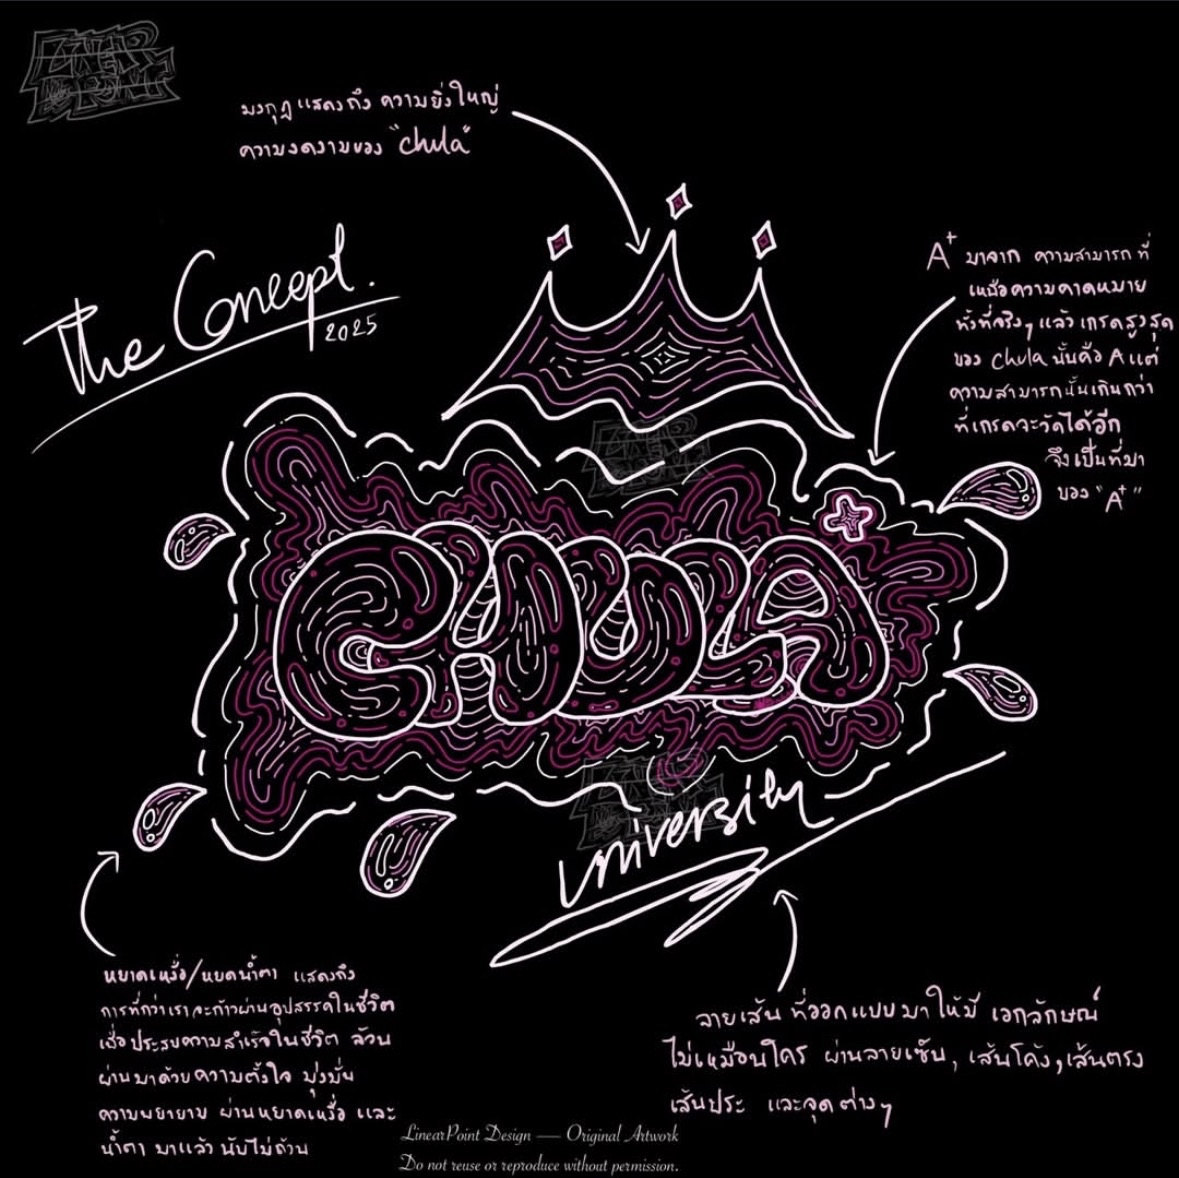 มงกุฎ แสดงถึง ความยิ่งใหญ่
ความงดงามของ "chula"
The Concept.
2025
A+ มาจาก ความสามารถ ที่
เหนือความคาดหมาย
ทั้งที่จริงๆ แล้ว เกรดสูงสุด
ของ chula นั้นคือ A แต่
ความสามารถนั้นเกินกว่า
ที่เกรดจะวัดได้อีก
จึงเป็นที่มา
ของ "A+"
CHULA
University
หยาดเหงื่อ/หยดน้ำตา แสดงถึง
การที่กว่าเราจะก้าวผ่านอุปสรรคในชีวิต
เพื่อประสบความสำเร็จในชีวิต ล้วน
ผ่านมาด้วยความตั้งใจ มุ่งมั่น
ความพยายาม ผ่านหยาดเหงื่อ และ
น้ำตา มาแล้ว นับไม่ถ้วน
ลายเส้น ที่ออกแบบมาให้มี เอกลักษณ์
ไม่เหมือนใคร ผ่านลายเซ็น, เส้นโค้ง, เส้นตรง
เส้นประ และจุดต่างๆ
LinearPoint Design — Original Artwork
Do not reuse or reproduce without permission.